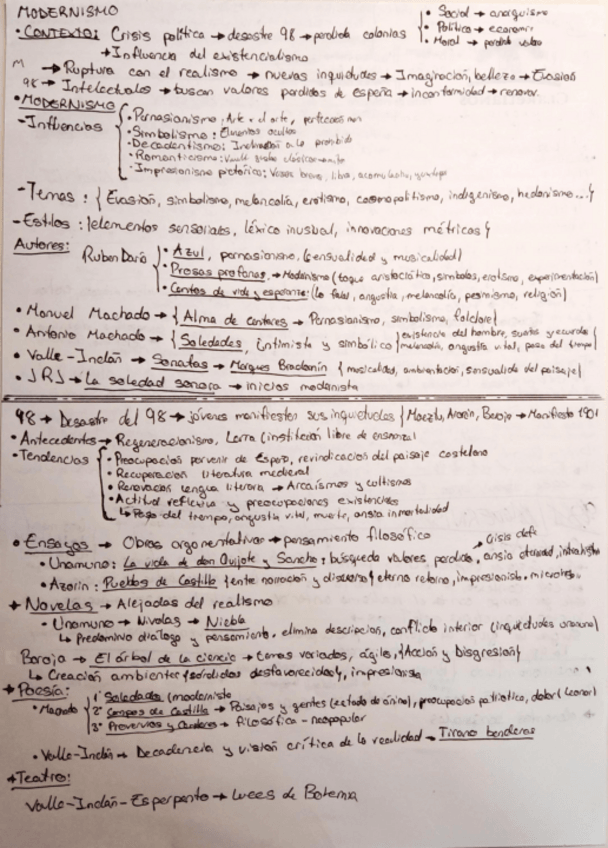 MODERNISMO
• CONTEXTO: Crisis política → desastre 98 → perdida colonias { • Social → anarquismo
• Política → economía
• Moral → perdida valores
→ Influencia del existencialismo
M → Ruptura con el realismo → nuevas inquietudes → Imaginación, belleza → Evasión
98 → Intelectuales → buscan valores perdidos de España → inconformidad → renovar.
• MODERNISMO
- Influencias { • Parnasianismo: Arte x el arte, perfección
• Simbolismo: Elementos ocultos
• Decadentismo: Inclinación a lo prohibido
• Romanticismo:
• Impresionismo pictórico:
- Temas: { Evasión, simbolismo, melancolía, erotismo, cosmopolitismo, indigenismo, hedonismo...}
- Estilos: {elementos sensoriales, léxico inusual, innovaciones métricas}
Autores: Rubén Darío { • Azul, parnasianismo, (sensualidad y musicalidad)
• Prosas profanas → Modernismo (toque aristocrático, símbolos, erotismo, experimentación)
• Cantos de vida y esperanza: (lo fatal, angustia, melancolía, pesimismo, religión)
• Manuel Machado → { Alma de cantares → Parnasianismo, simbolismo, folclore}
• Antonio Machado → { Soledades, intimista y simbólico { existencia del hombre, sueños y recuerdos
melancolía, angustia vital, paso del tiempo
• Valle-Inclán → Sonatas → Marques Bradomín { musicalidad, ambientación, sensualidad del paisaje}
• JRJ → La soledad sonora → inicios modernista
98 → Desastre del 98 → jóvenes manifiestan sus inquietudes { Maeztu, Azorín, Baroja → Manifiesto 1901
• Antecedentes → Regeneracionismo, Larra (institución libre de enseñanza)
• Tendencias { • Preocupación porvenir de España, revindicación del paisaje castellano
• Recuperación literatura medieval
• Renovación lengua literaria → Arcaísmos y cultismos
• Actitud reflexiva y preocupaciones existenciales
↳ Paso del tiempo, angustia vital, muerte, ansia inmortalidad
• Ensayos → Obras argumentativas → pensamiento filosófico
• Unamuno: La vida de don Quijote y Sancho: búsqueda valores perdidos, crisis de fe, ansia eternidad, intrahistoria
• Azorín: Pueblos de Castilla {ente narración y discurso} eterno retorno, impresionista.
+ Novelas → Alejadas del realismo
• Unamuno → Nivolas → Niebla
↳ Predominio diálogo y pensamiento, elimina descripción, conflicto interior (inquietudes unamuno)
Baroja → El árbol de la ciencia → temas variados, ágil, {Acción y Disgresión}
↳ Creación ambientes {sórdidos desfavorecidos}, impresionista
+ Poesía:
• Machado { 1° Soledades (modernista
2° Campos de Castilla → Paisajes y gentes (estado de ánimo), preocupación patriótica, dolor (Leonor)
3° Proverbios y Cantares → filosófica - neopopular
• Valle-Inclán → Decadencia y visión crítica de la realidad → Tirano banderas
+ Teatro:
Valle-Inclán - Esperpento → Luces de Bohemia